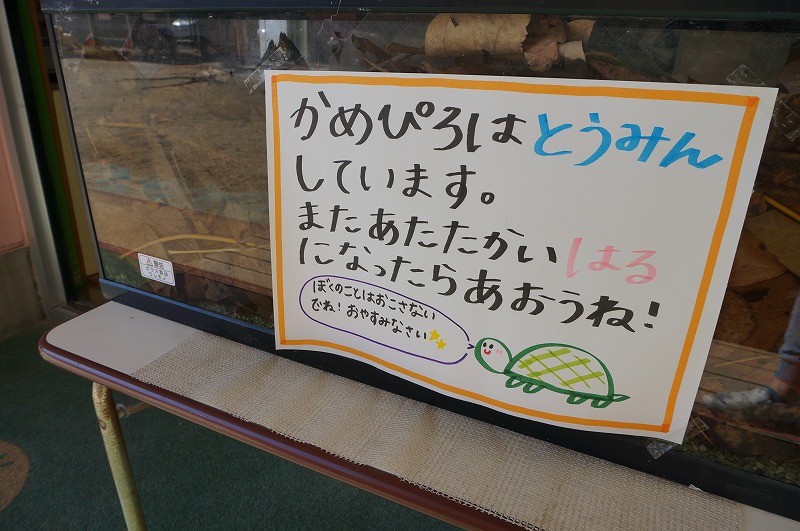 かめぴろはとうみん
しています。
またあたたかいはる
になったらあおうね!
ぼくのことはおこさない
でね!おやすみなさい